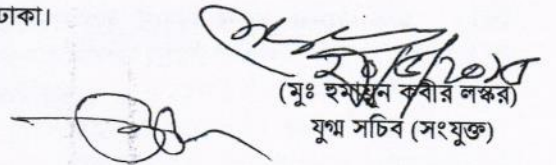 ঢাকা।
(মুঃ হুমায়ুন কবীর লস্কর)
যুগ্ম সচিব (সংযুক্ত)